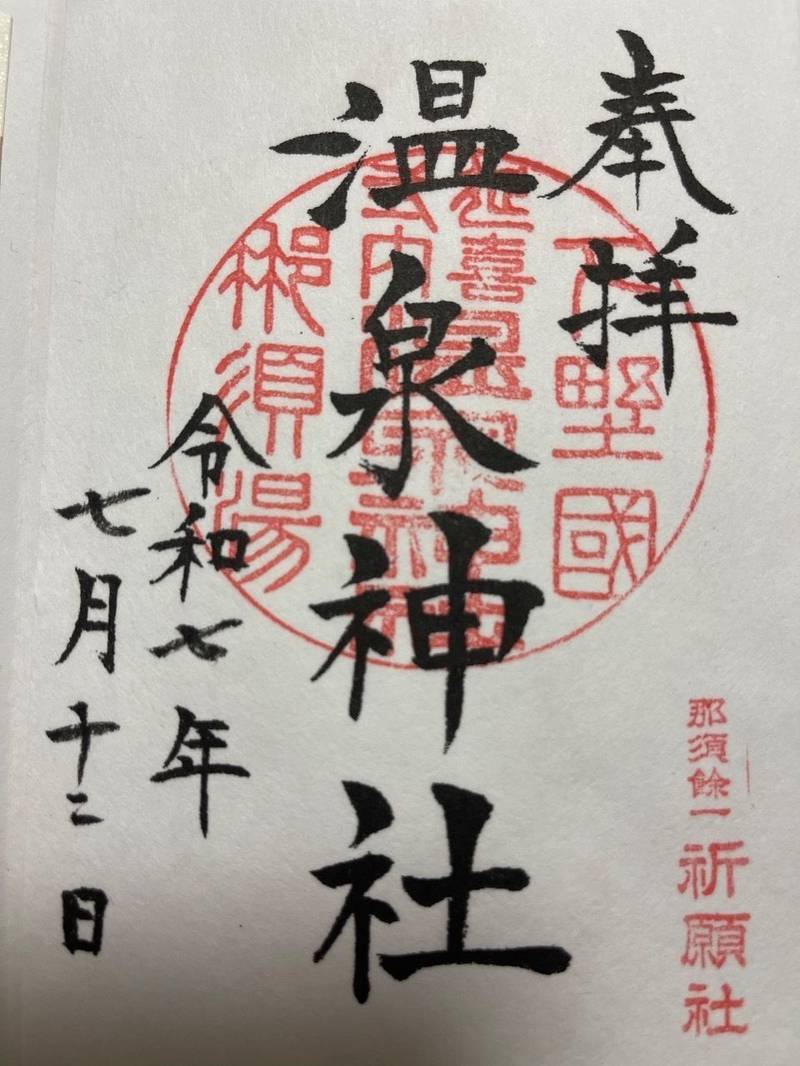 奉拝
温泉神社
令和七年
七月十二日
下野國
延喜
式内
温泉神社
那須湯
那須餘一
祈願社